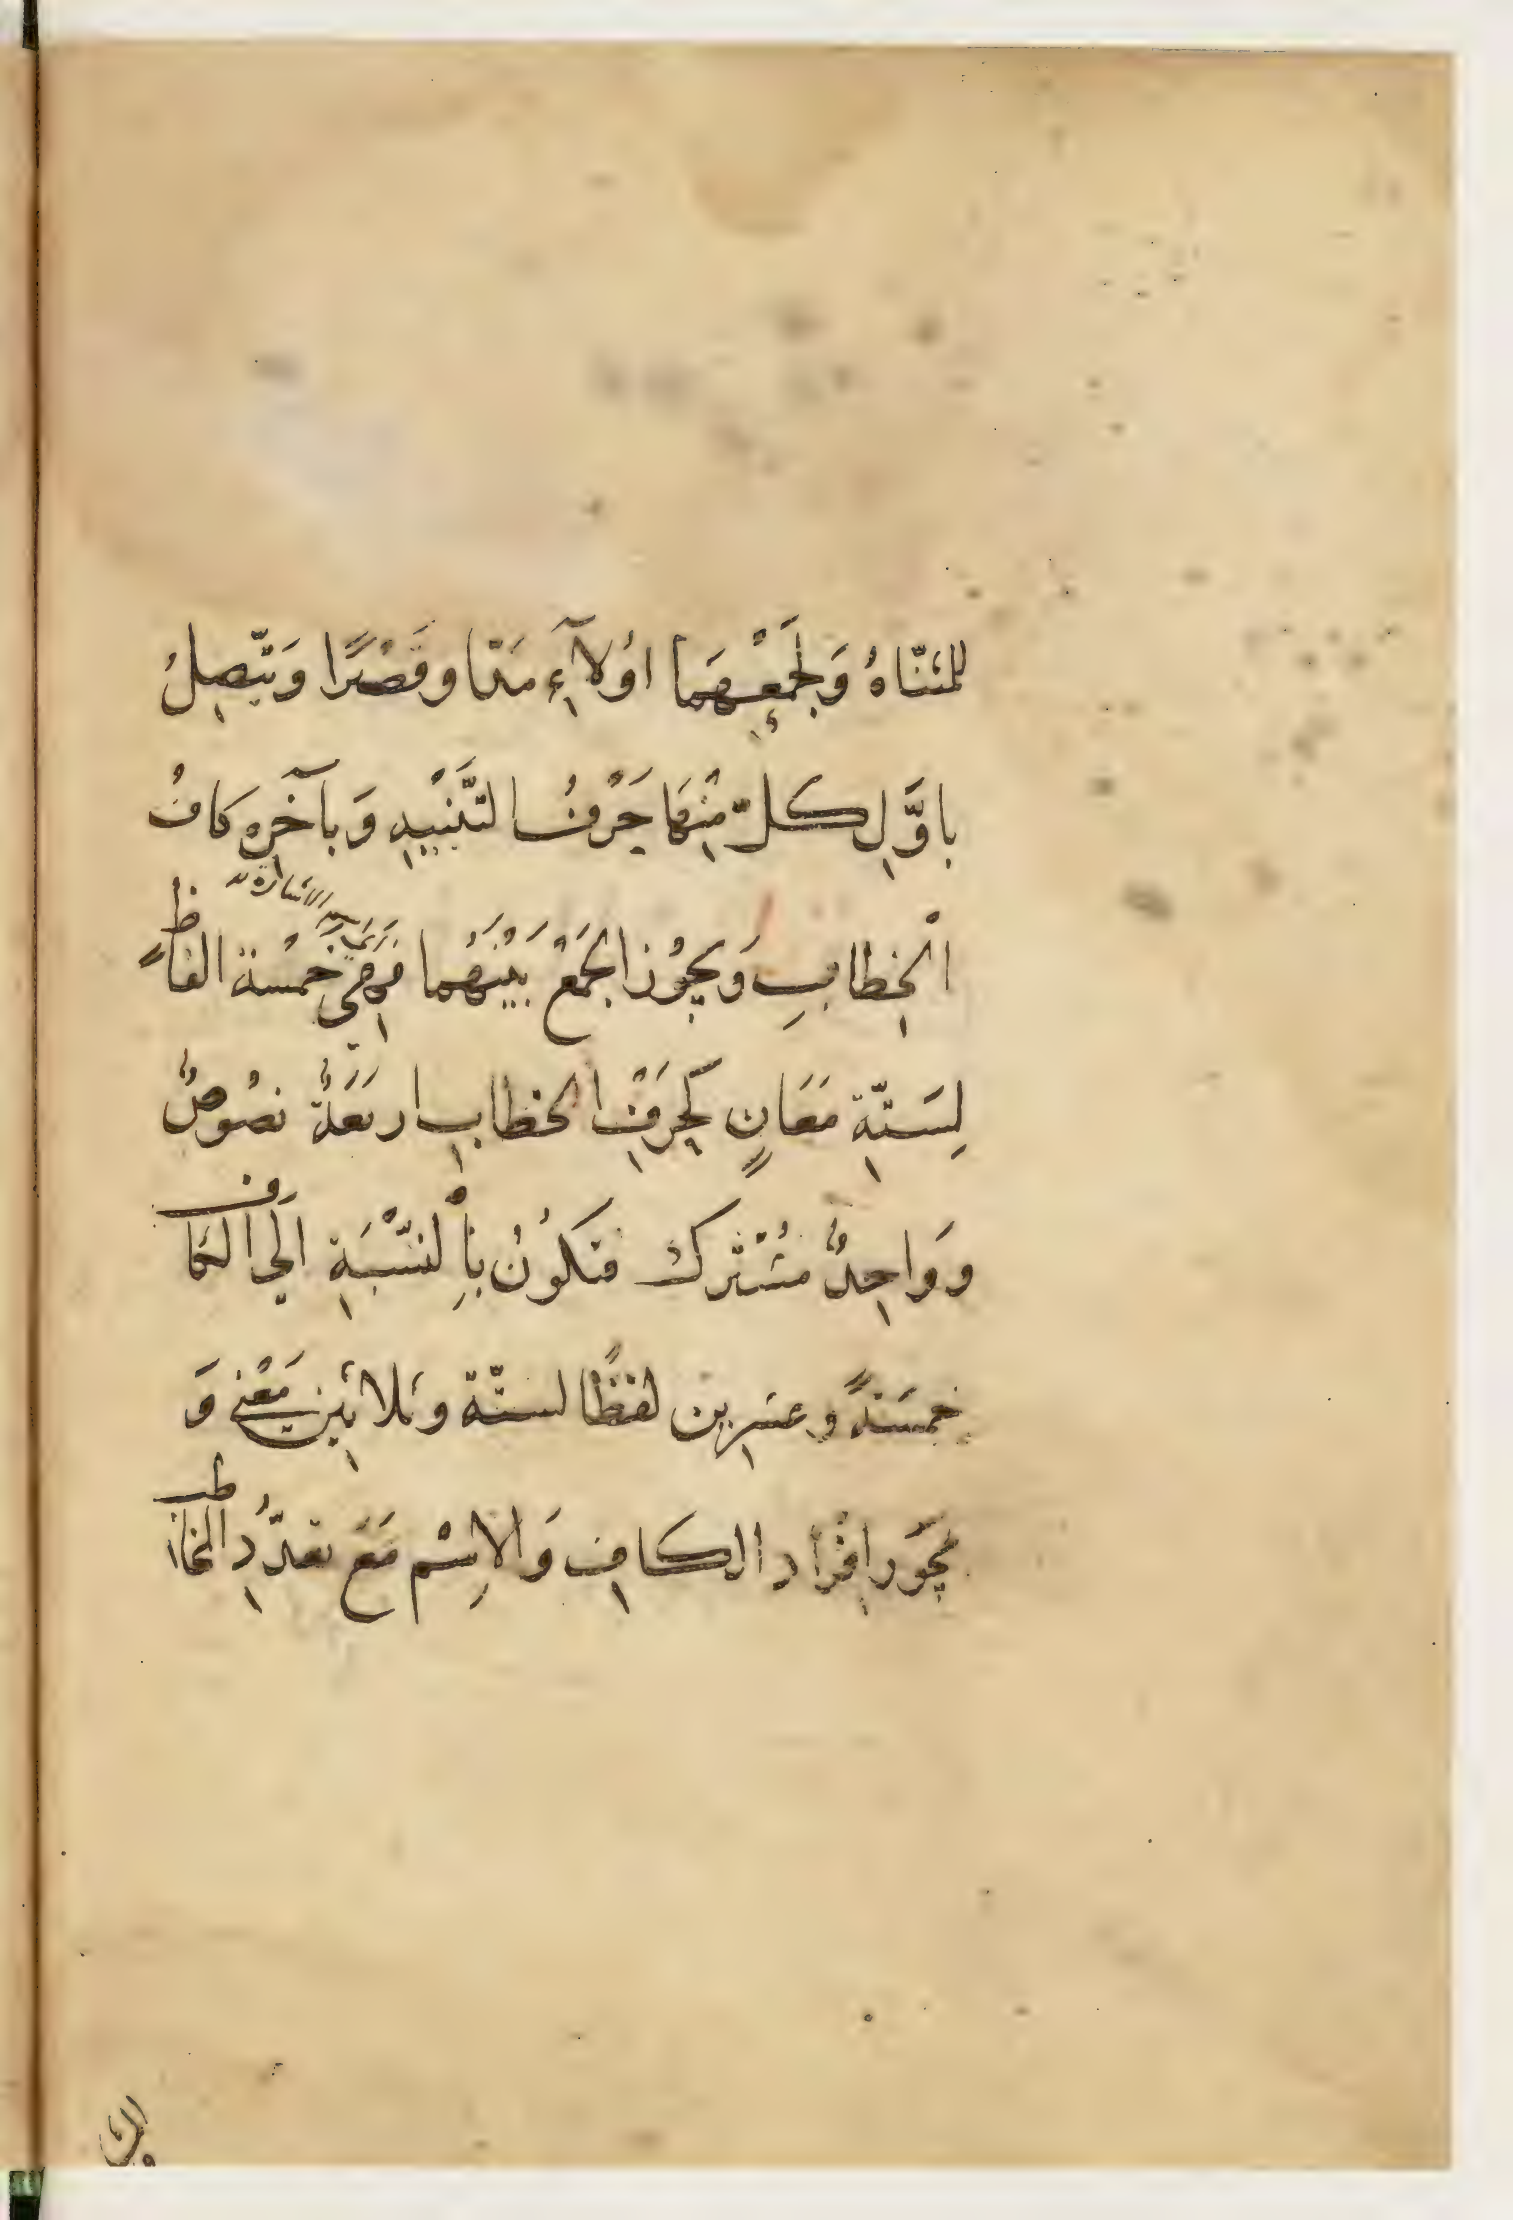 للمثنّاهُ وَلجَمْعِهَما اوُلآءِ مَدّا وقَصْرًا وَيَتّصِلُ
باوَّلِ كلّ مِنْهَا حَرْفُ التَّنْبِيْهِ وَبآخرِهِ كَافُ
الْخِطابِ وَيجُوْز الجَمَعْ بَيْنَهُما فَهِيَ خَمْسَة الفاظٍ
الاشارة
لِسَتّةِ مَعَانٍ كحَرَفِ الخطابِ اربَعَةٌ نصُوصٌ
ووَاحِدٌ مُشْتَرك فتكوُنُ بِاْلنِسّبَةِ الَي الكاف
خمسَةً وعشرين لفظًا لستّة وثلاثين مَعْني وَ
يجَوّر افْراد الكافِ وَالاِسْم مَعَ تعدّدِ المخاطب